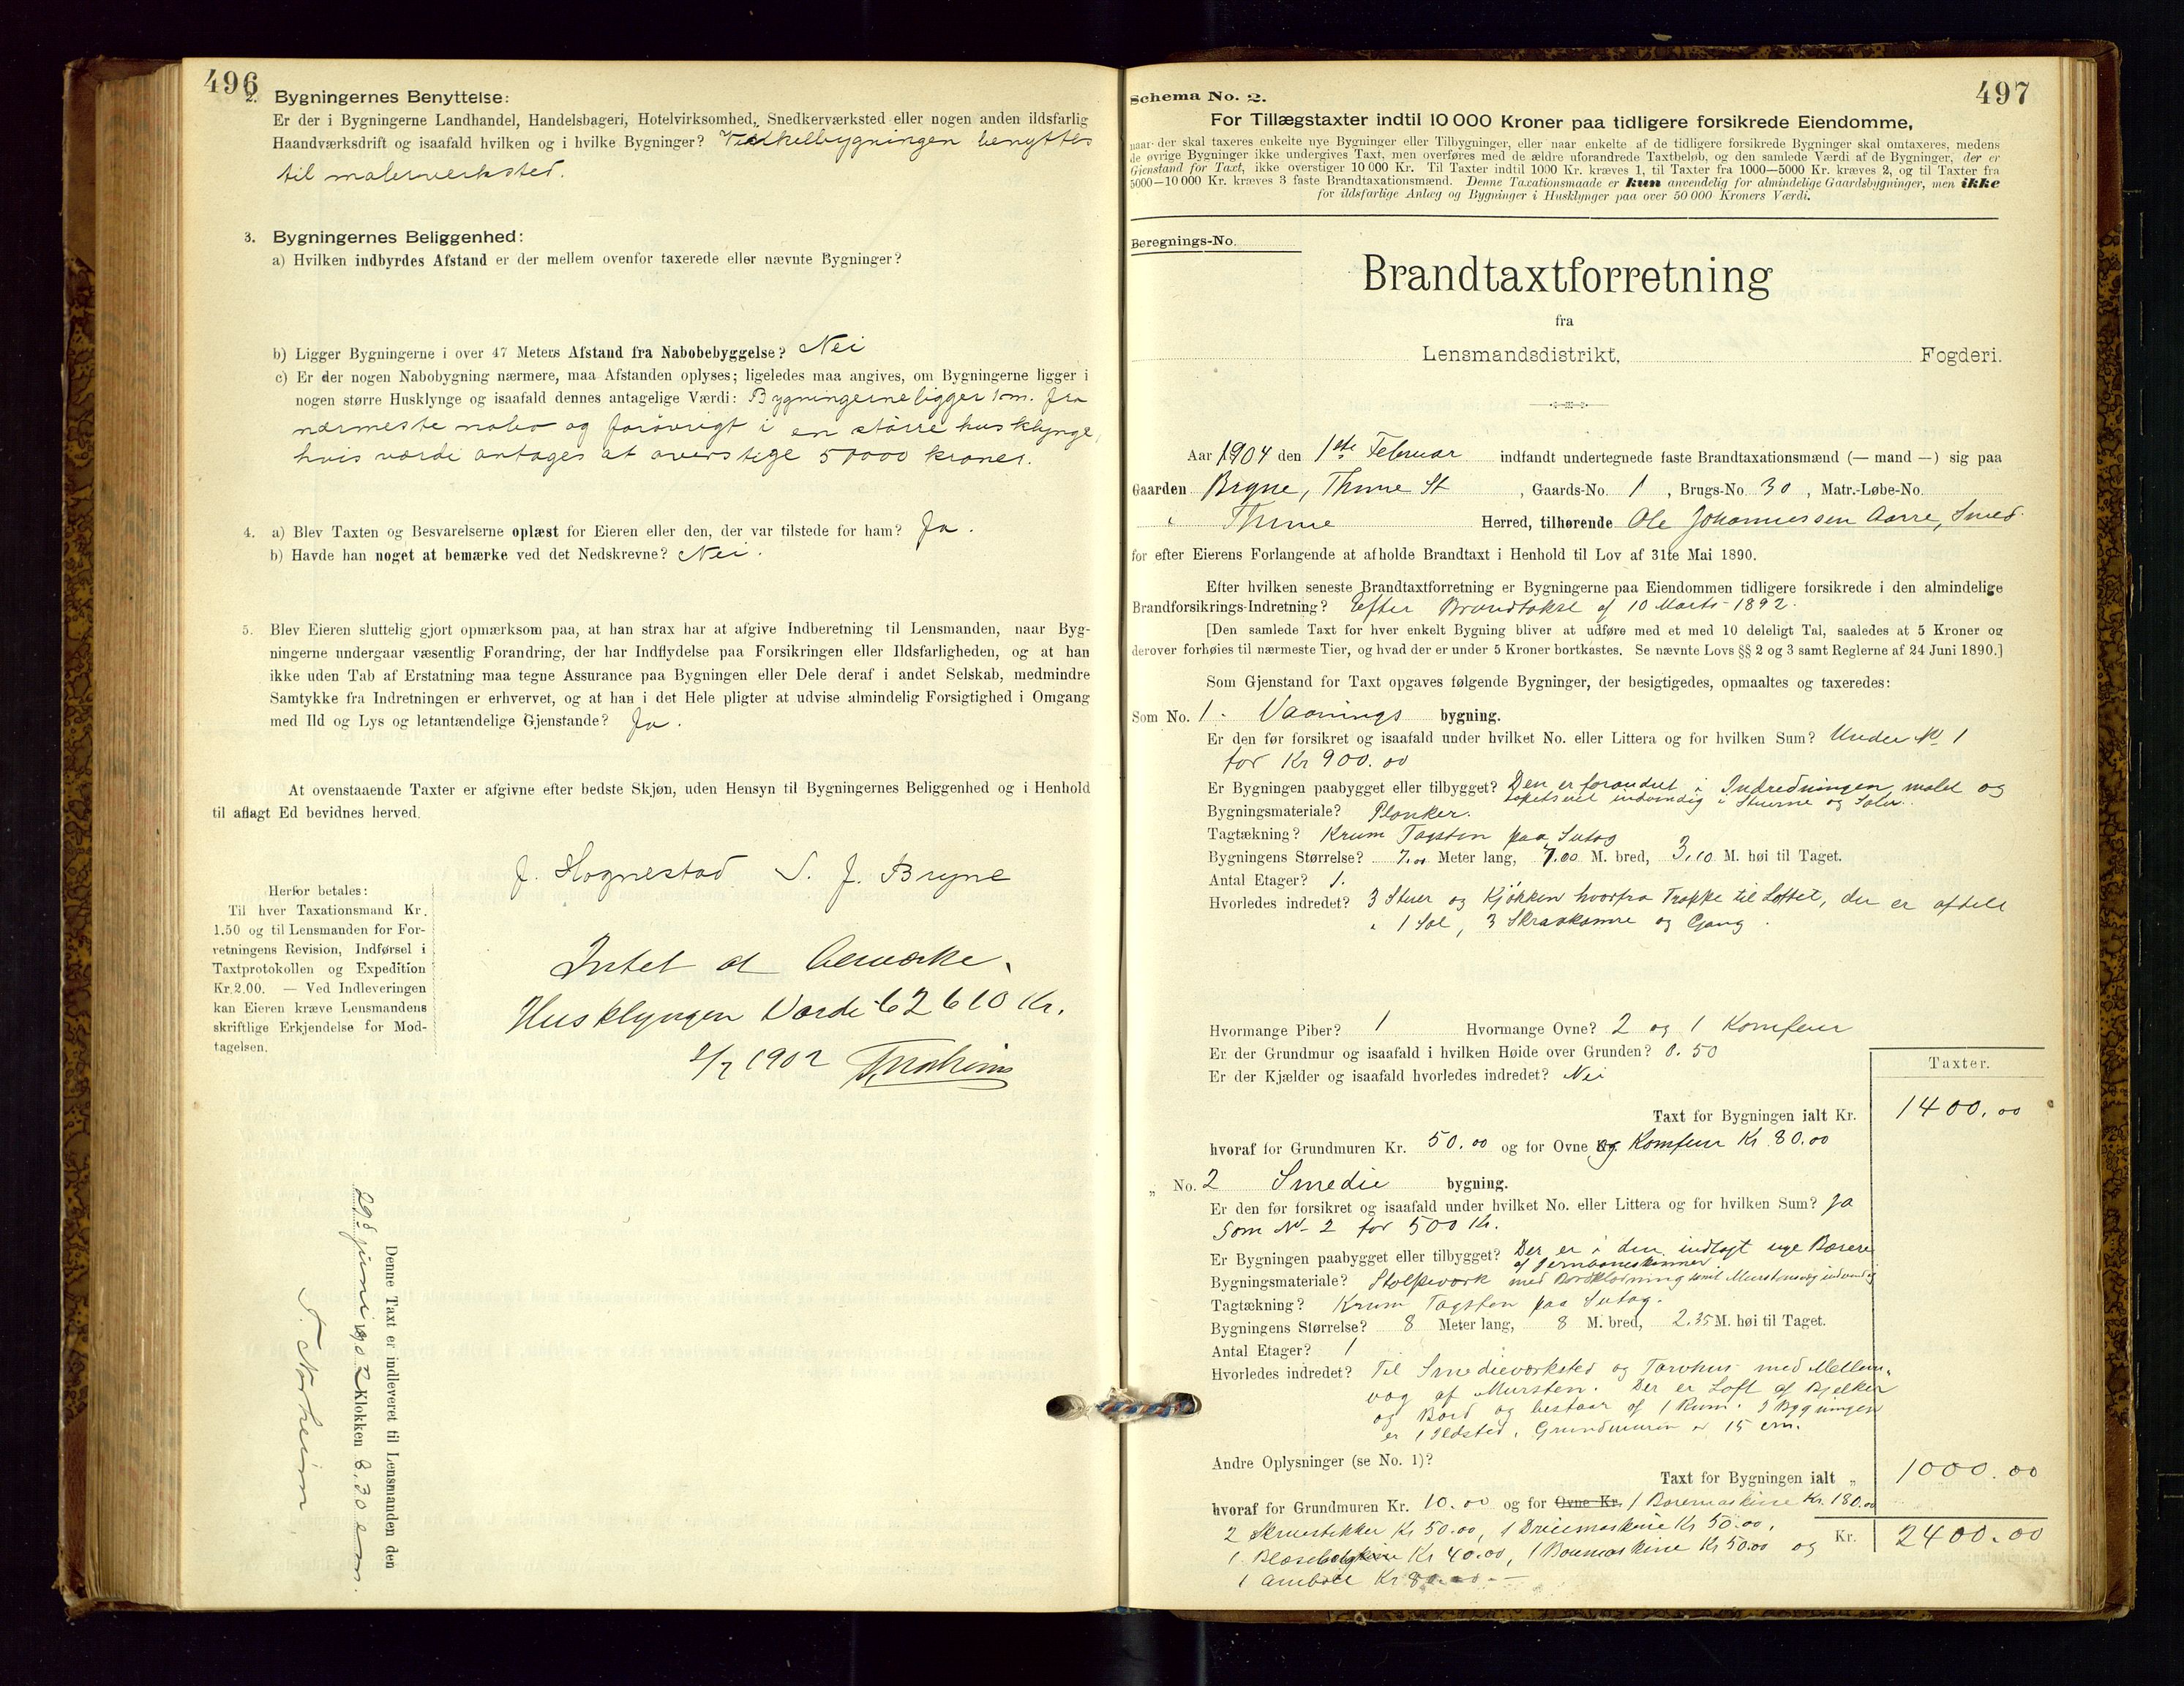 496
2. Bygningernes Benyttelse:
Er der i Bygningerne Landhandel, Handelsbageri, Hotelvirksomhed, Snedkerværksted eller nogen anden ildsfarlig
Haandværksdrift og isaafald hvilken og i hvilke Bygninger? Vinkelbygningen benyttes
til malerverksted.
3. Bygningernes Beliggenhed:
a) Hvilken indbyrdes Afstand er der mellem ovenfor taxerede eller nævnte Bygninger?
b) Ligger Bygningerne i over 47 Meters Afstand fra Nabobebyggelse? Nei
c) Er der nogen Nabobygning nærmere, maa Afstanden oplyses; ligeledes maa angives, om Bygningerne ligger i
nogen større Husklynge og isaafald dennes antagelige Værdi: Bygningerne ligger 1 m. fra
nærmeste nabo og forøvrigt i en større husklynge,
hvis værdi antages at overstige 50000 kroner.
4. a) Blev Taxten og Besvarelserne oplæst for Eieren eller den, der var tilstede for ham? Ja.
b) Havde han noget at bemærke ved det Nedskrevne? Nei.
5. Blev Eieren sluttelig gjort opmærksom paa, at han strax har at afgive Indberetning til Lensmanden, naar Byg-
ningerne undergaar væsentlig Forandring, der har Indflydelse paa Forsikringen eller Ildsfarligheden, og at han
ikke uden Tab af Erstatning maa tegne Assurance paa Bygningen eller Dele deraf i andet Selskab, medmindre
Samtykke fra Indretningen er erhvervet, og at han i det Hele pligter at udvise almindelig Forsigtighed i Omgang
med Ild og Lys og letantændelige Gjenstande? Ja.
At ovenstaaende Taxter er afgivne efter bedste Skjøn, uden Hensyn til Bygningernes Beliggenhed og i Henhold
til aflagt Ed bevidnes herved.
J. Hognestad S. J. Bryne
Herfor betales:
Til hver Taxationsmand Kr.
1.50 og til Lensmanden for For-
retningens Revision, Indførsel i
Taxtprotokollen og Expedition
Kr.2.00. — Ved Indleveringen
kan Eieren kræve Lensmandens
skriftlige Erkjendelse for Mod-
tagelsen.
Intet at bemærke.
Husklyngen Værdi 62610 Kr.
2/7 1902
Denne Taxt er indleveret til Lensmanden den
29de juni 1902 Klokken 8.30 em.
T. Norheim
497
Schema No. 2.
For Tillægstaxter indtil 10 000 Kroner paa tidligere forsikrede Eiendomme,
naar der skal taxeres enkelte nye Bygninger eller Tilbygninger, eller naar enkelte af de tidligere forsikrede Bygninger skal omtaxeres, medens
de øvrige Bygninger ikke undergives Taxt, men overføres med de ældre uforandrede Taxtbeløb, og den samlede Værdi af de Bygninger, der er
Gjenstand for Taxt, ikke overstiger 10 000 Kr. Til Taxter indtil 1000 Kr. kræves 1, til Taxter fra 1000—5000 Kr. kræves 2, og til Taxter fra
5000—10 000 Kr. kræves 3 faste Brandtaxationsmænd. Denne Taxationsmaade er kun anvendelig for almindelige Gaardsbygninger, men ikke
for ildsfarlige Anlæg og Bygninger i Husklynger paa over 50 000 Kroners Værdi.
Beregnings-No.
Brandtaxtforretning
fra
Lensmandsdistrikt, Fogderi.
Aar 1904 den 1ste Februar indfandt undertegnede faste Brandtaxationsmænd (— mand —) sig paa
Gaarden Bryne, Thime St , Gaards-No. 1 , Brugs-No. 30 , Matr.-Løbe-No.
i Thime Herred, tilhørende Ole Johannessen Aarre, Smed
for efter Eierens Forlangende at afholde Brandtaxt i Henhold til Lov af 31te Mai 1890.
Efter hvilken seneste Brandtaxtforretning er Bygningerne paa Eiendommen tidligere forsikrede i den almindelige
Brandforsikrings-Indretning? Efter Brandtakst af 10 Marts 1892.
[Den samlede Taxt for hver enkelt Bygning bliver at udføre med et med 10 deleligt Tal, saaledes at 5 Kroner og
derover forhøies til nærmeste Tier, og hvad der er under 5 Kroner bortkastes. Se nævnte Lovs §§ 2 og 3 samt Reglerne af 24 Juni 1890.]
Som Gjenstand for Taxt opgaves følgende Bygninger, der besigtigedes, opmaaltes og taxeredes:
Som No. 1. Vaanings bygning.
Er den før forsikret og isaafald under hvilket No. eller Littera og for hvilken Sum? Under No 1
for Kr 900.00
Er Bygningen paabygget eller tilbygget? Den er forandret i Indredningen, malet og
tapetseret indvendig i Stuerne og Salen.
Bygningsmateriale? Planker.
Tagtækning? Krum Tagsten paa Sutag
Bygningens Størrelse? 7.00 Meter lang, 7.00 M. bred, 3,10 M. høi til Taget.
Antal Etager? 1.
Hvorledes indredet? 3 Stuer og Kjøkken hvorfra Trappe til Loftet, der er afdelt
i 1 Sal, 3 Skraakamre og Gang.
Hvormange Piber? 1 Hvormange Ovne? 2 og 1 Komfeur
Er der Grundmur og isaafald i hvilken Høide over Grunden? 0.50
Er der Kjælder og isaafald hvorledes indredet? Nei
Taxter.
Taxt for Bygningen ialt Kr. 1400.00
hvoraf for Grundmuren Kr. 50.00 og for Ovne og Komfeur Kr 80.00
„ No. 2 Smedie bygning.
Er den før forsikret og isaafald under hvilket No. eller Littera og for hvilken Sum? Ja
Som No 2 for 500 Kr.
Er Bygningen paabygget eller tilbygget? Der er i den indlagt nye Bærere
af Jernbaneskinner.
Bygningsmateriale? Stolpeværk med Bordklædning samt Murstensvæg indvendig
Tagtækning? Krum Tagsten paa Sutag.
Bygningens Størrelse? 8 Meter lang, 8 M. bred, 2.35 M. høi til Taget.
Antal Etager? 1
Hvorledes indredet? Til Smedieværksted og Tørvhus med Mellem-
væg af Mursten. Der er Loft af Bjelker
og Bord og bestaar af 1 Rum. I Bygningen
er 1 Ildsted. Grundmuren er 15 cm.
Andre Oplysninger (se No. 1)?
Taxt for Bygningen ialt „ 1000.00
hvoraf for Grundmuren Kr. 10.00 og for Ovne Kr. 1 Boremaskine Kr. 180.00
2 Skruestikker Kr 50.00, 1 Dreiemaskine Kr 50.00,
1 Kr 40.00, 1 Kr 50.00 og
1 Ambolt Kr
Kr. 2400.00